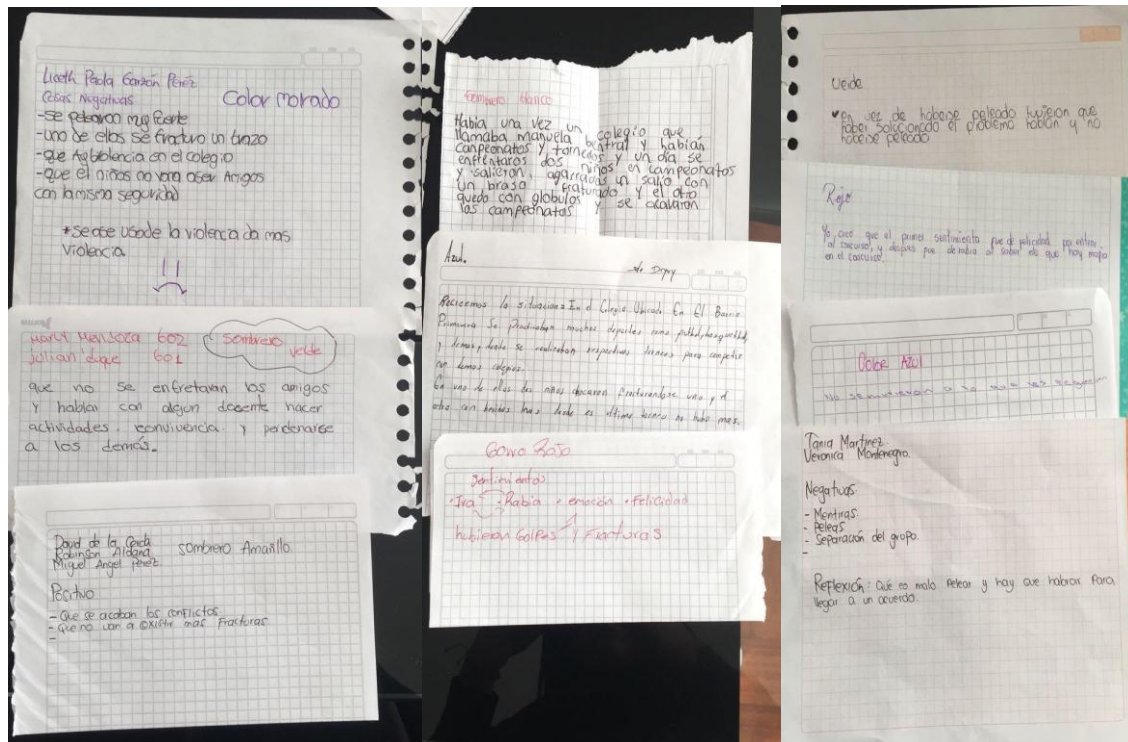 Liceth Paola Garzón Pérez
Cosas Negativas
Color Morado
-se pegaron muy fuerte
-uno de ellos se fracturo un brazo
-que Agbiolencia en el colegio
-que el niños no van a ser Amigos
con la misma seguridad
*se debe usade la violencia da mas
violencia.
Mendoza 602
julian duque 601
sombrero
verde
que no se enfretaran los amigos
y hablar con algun docente hacer
actividades. convivencia. y perdonarse
a los demás.
David de la Cerda
Robinson Aldana
Miguel Angel Pérez
sombrero Amarillo
Positivo
- Que se acaban los conflictos.
- Que no van a existir mas Fracturas.
-
Sombrero blanco
Habia una vez un colegio que
llamaba manuela bentral y habian
canpeonatos y torneos y un dia se
enfrentaros dos niños en campeonatos
y salieron. agarrados un salio con
un braso fraturado y el otro
quedo con globulos y se acavaron
los campeonatos
Azul.
Recreemos la situacion: En el Colegio Ubicado En El Barrio
Primavera Se Practicaban muchos deportes como
y demas, donde se realizaban respectivos torneos para competir
con demas colegios.
En uno de ellos dos niños chocaron fracturandose uno y el
otro con heridas desde es ultimo torneo no hubo mas.
Gorro Rojo
Sentimientos
• Ira • Rabia • emoción • Felicidad
hubieran Golpes y Fracturas
Verde
en vez de haberse peleado tuvieron que
haber solucionado el problema hablan y no
haberse peleado
Rojo
Yo creo que el primer sentimiento fue de felicidad por entrar
al concurso, y despues fue de rabia al saber de que hay
en el concurso.
Color Azul
No se metieran a la que les
Tania Martinez.
Veronica Montenegro.
Negativas.
- Mentiras.
- Peleas
- Separación del grupo.
-
Reflexión: Qué es malo Pelear y hay que hablar Para
llegar a un acuerdo.